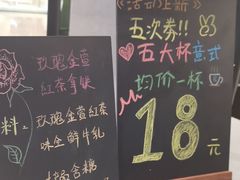 玫瑰金萱
红茶拿铁
料:
玫瑰金萱红茶
味全鲜牛乳
含糖
《活动上新》
五次券!!
五大杯意式
均价一杯
18元